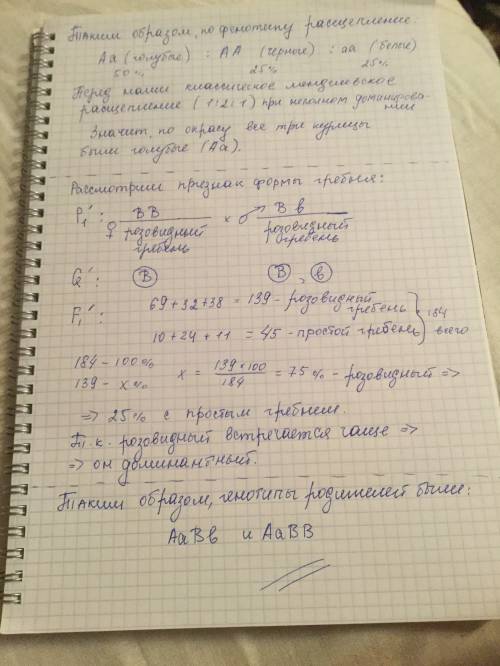 Таким образом, по фенотипу расщепление:
Аа (голубые) : АА (черные) : аа (белые)
50% 25% 25%
Перед нами классическое менделевское
расщепление (1:2:1) при неполном доминирова-
нии
Значит, по окрасу все три курицы
были голубые (Аа).
Рассмотрим признак формы гребня:
P₁′: ♀ BB × ♂ Bb
розовидный розовидный
гребень гребень
G′: B B, b
F₁′: 69+32+38 = 139 - розовидный
гребень
10+24+11 = 45 - простой гребень } 184
всего
184 - 100%
139 - x% x = 139×100/184 = 75% - розовидный =>
=> 25% с простым гребнем.
Т.к. розовидный встречается чаще =>
=> он доминантный.
Таким образом, генотипы родителей были:
АаВb и АаВВ